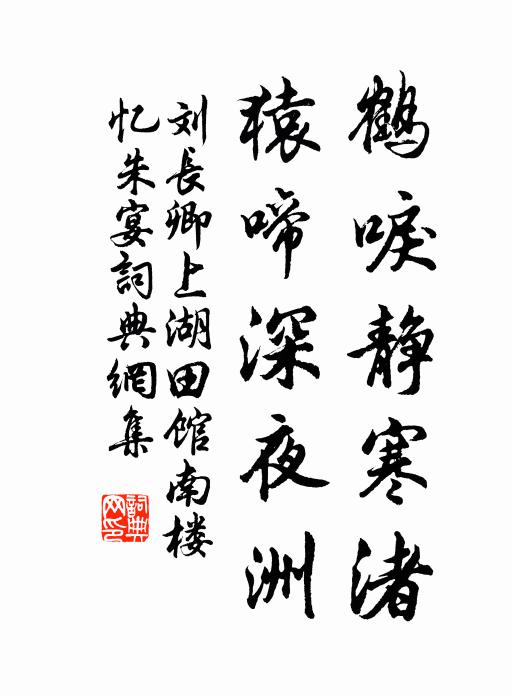 鹤唳静寒渚
猿啼深夜洲
刘長卿上湖田馆南楼
忆朱宴詞典網集
詞典
网印